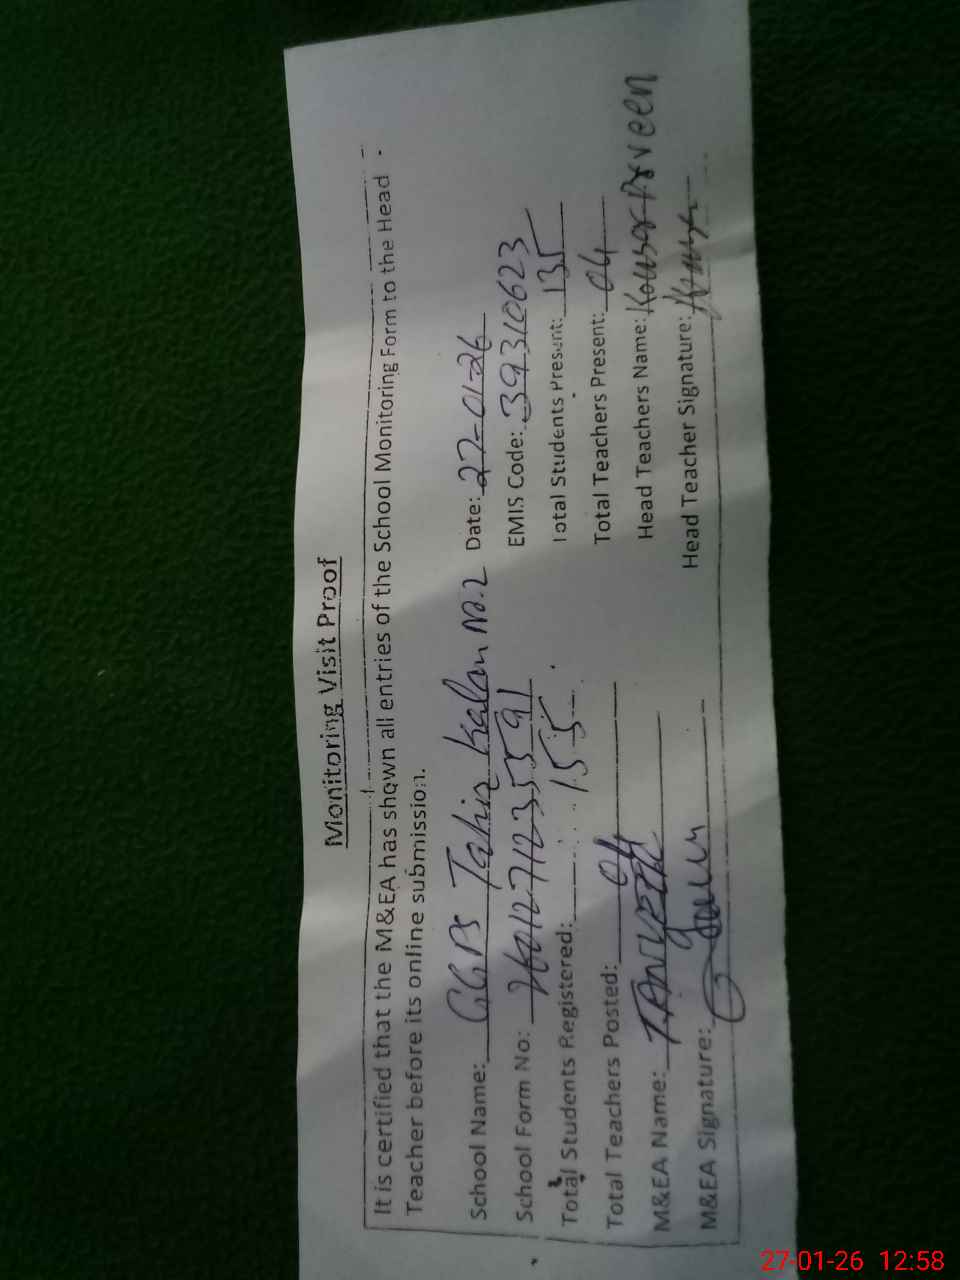 Monitoring Visit Proof
It is certified that the M&EA has shown all entries of the School Monitoring Form to the Head
Teacher before its online submission.
School Name: GGPS Tahir Kalan No.2 Date: 27-01-26
School Form No: 2601271235591 EMIS Code: 39310623
Total Students Registered: 155 Total Students Present: 135
Total Teachers Posted: 04 Total Teachers Present: 04
M&EA Name: TANVEER Head Teachers Name: Kousar Prveen
M&EA Signature: Head Teacher Signature:
27-01-26 12:58